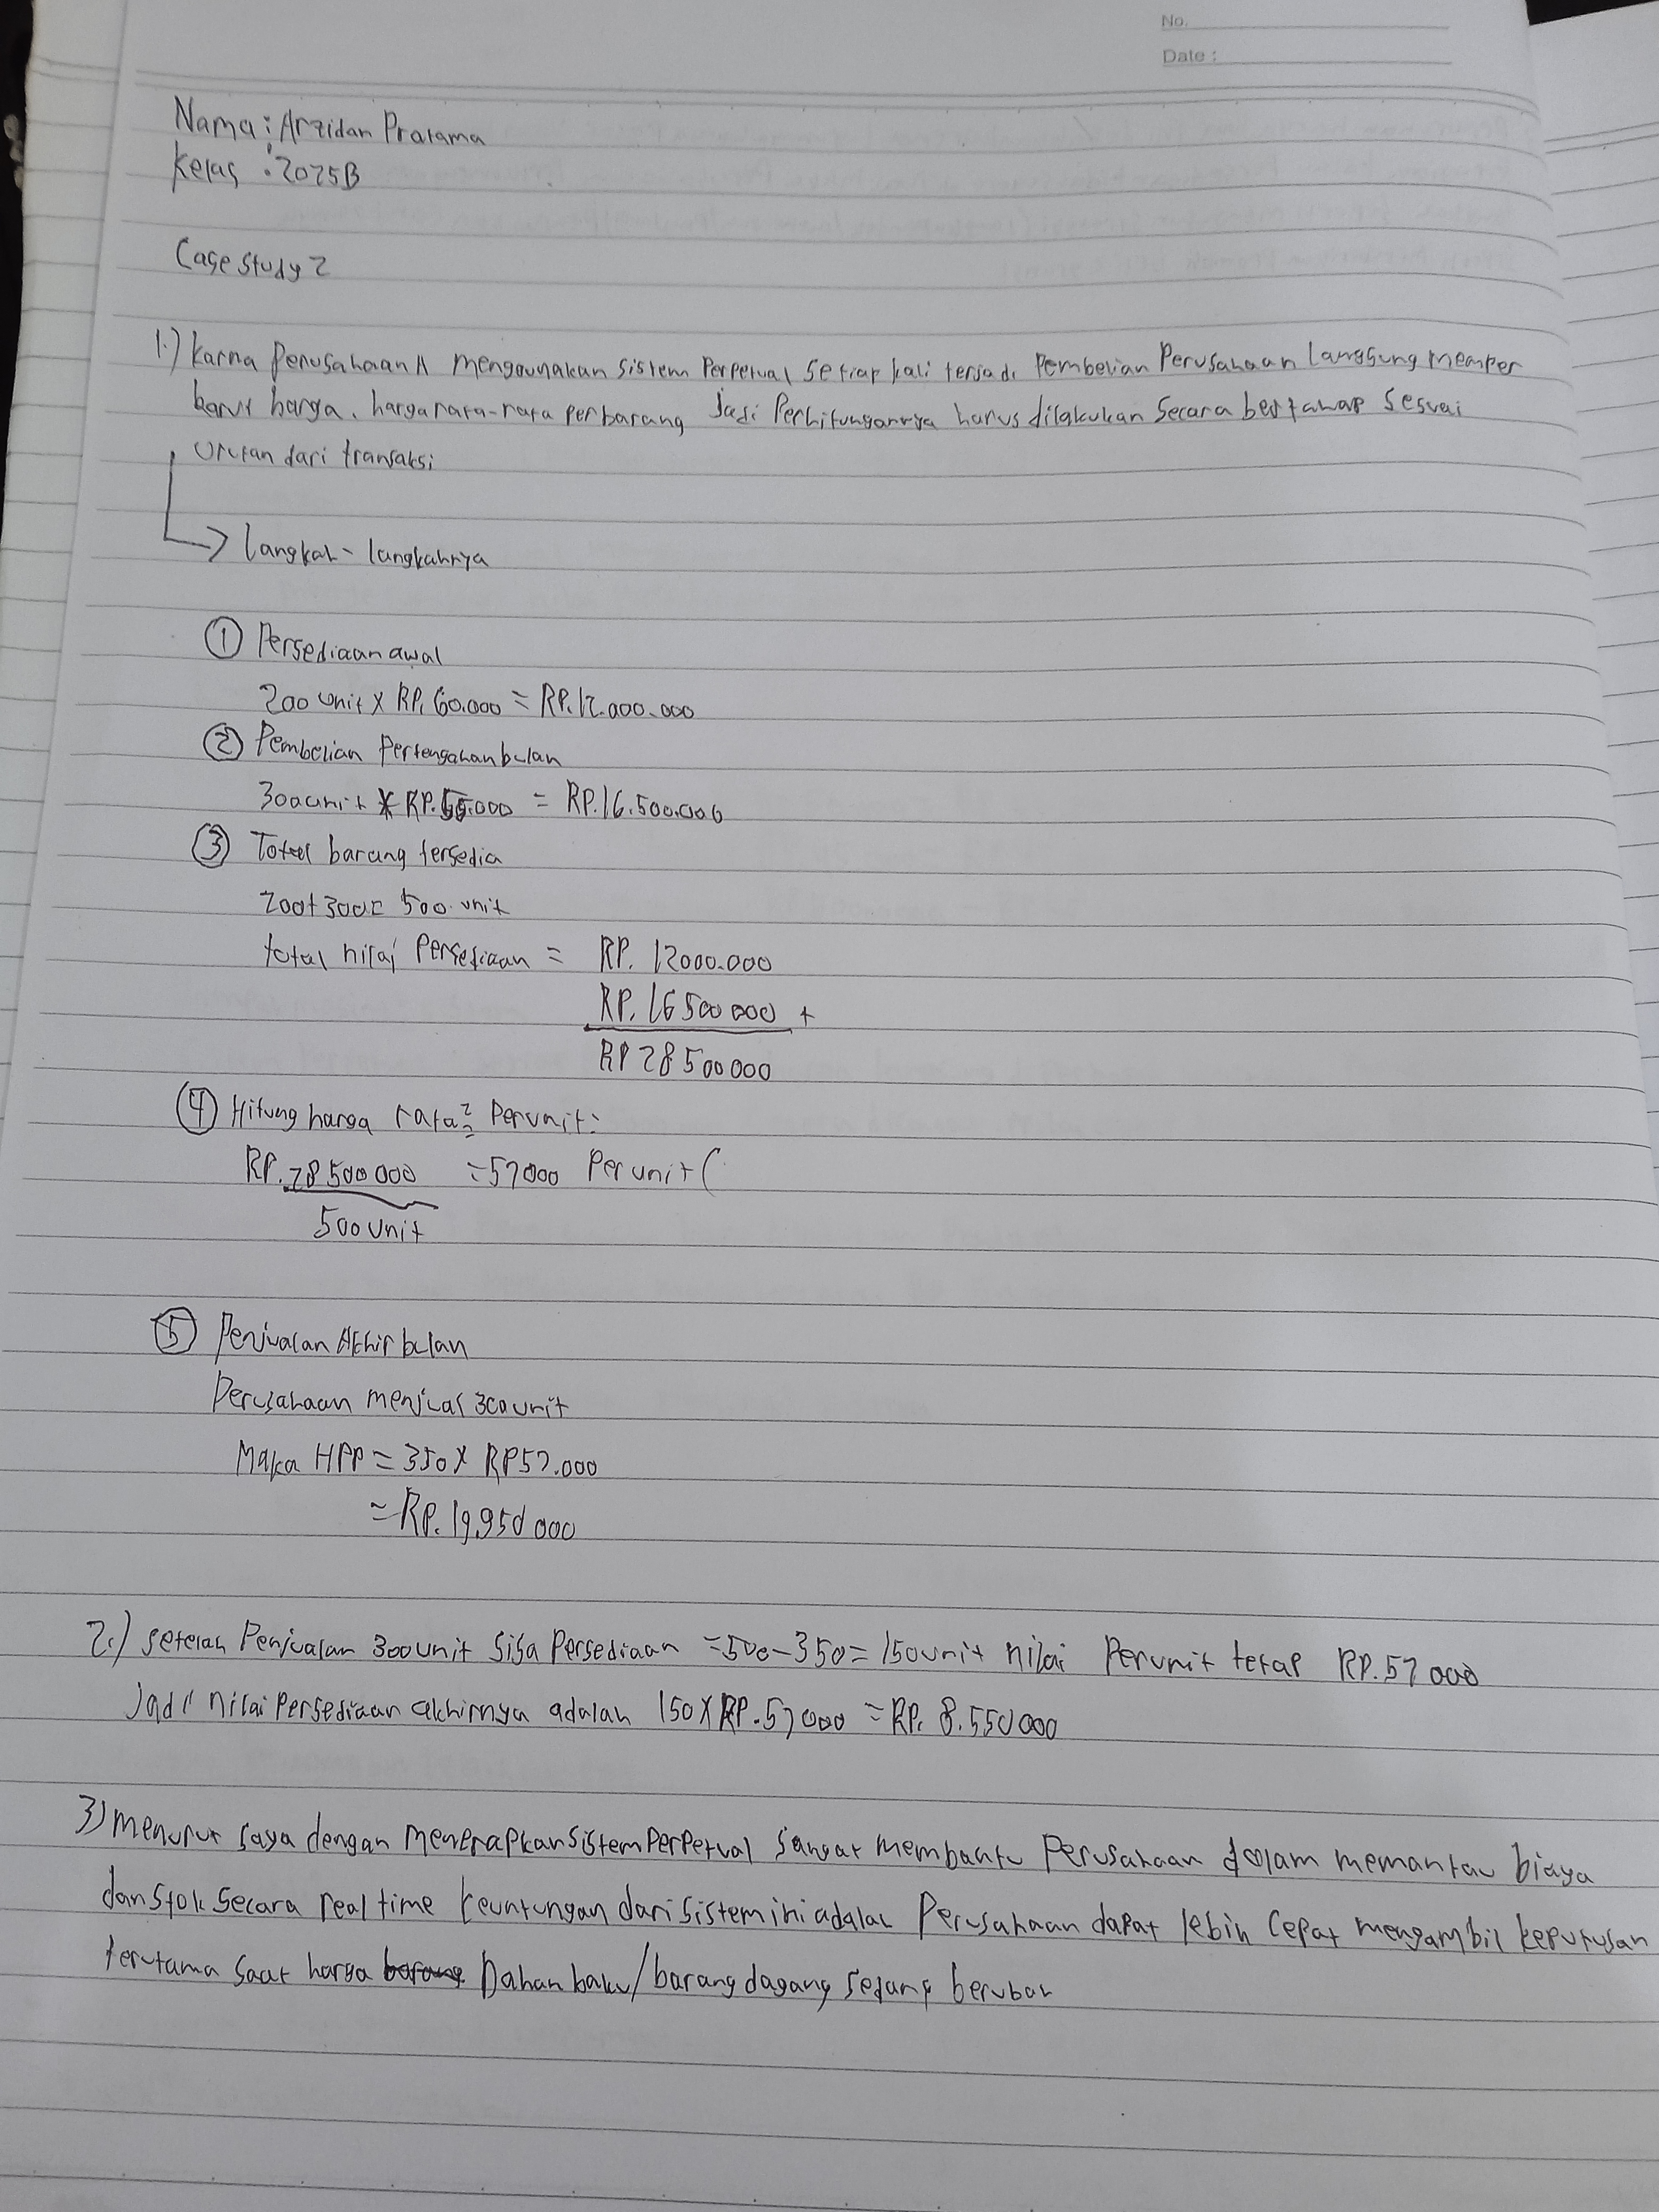 No.
Date :
Nama : Arzidan Pratama
Kelas : 2025B
Case Study 2
1.) Karna Perusahaan A menggunakan sistem Perpetual Setiap kali terjadi Pembelian Perusahaan Langsung memper
barui harga, harga rata-rata perbarang Jadi Perhitungannya harus dilakukan Secara bertahap Sesuai
Urutan dari transaksi
Langkah-langkahnya
① Persediaan awal
200 unit x RP. 60.000 = RP.12.000.000
② Pembelian Pertengahan bulan
300 unit x RP.55.000 = RP.16.500.000
③ Total barang tersedia
200+300= 500 unit
total nilai Persediaan = RP. 12000.000
RP. 16 500 000 +
RP 28 500 000
④ Hitung harga rata² Perunit:
RP. 28 500 000 = 57000 Per unit (
500 unit
⑤ Penjualan Akhir bulan
Perusahaan menjual 300 unit
Maka HPP = 350 x RP57.000
= RP. 19.950 000
2.) setelah Penjualan 300 unit Sisa Persediaan = 500-350= 150 unit nilai Perunit tetap RP.57 000
Jadi nilai Persediaan akhirnya adalah 150 x RP.57 000 = RP. 8.550 000
3) menurut saya dengan menerapkan sistem Perpetual Sangat membantu Perusahaan dalam memantau biaya
dan Stok Secara real time keuntungan dari sistem ini adalah Perusahaan dapat lebih Cepat mengambil keputusan
terutama saat harga barang bahan baku/barang dagang sedang berubah